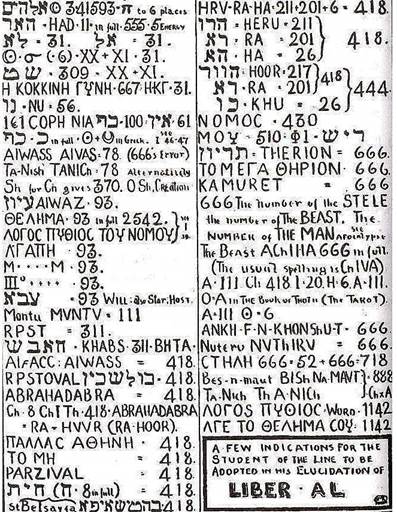 אלהים © 341593 · π to 6 places
האד · HAD · 11 in full · 555 · 5 Energy
לא = 31. אל = 31.
⊙ · σ · (6) · XX + XI · 31.
שט · 309 · XX + XI.
Η ΚΟΚΚΙΝΗ ΓΥΝΗ · 667 : ΗΚΓ · 31.
נו · NU · 56.
161 COPH NIA 100 · קוף · אין · 61
AIWASS AIVAS · 78 (666's Error)
Ta-Nish TANICH · 78 Alternatively
Sh for Ch gives 370. O Sh, Creation
עיוז AIWAZ · 93.
ΘΕΛΗΜΑ · 93 in full 2542.
ΛΟΓΟΣ ΠΥΘΙΟΣ ΤΟΥ ΝΟΜΟΥ
ΑΓΑΠΗ · 93.
M · · · · M · 93.
III° · · · · 93.
צבא · 93 Will: also Star. Host.
Montu MVNTV = 111
RPST = 311.
האבש · KHABS · 311 · BHTA ·
AIϜACC: AIWASS = 418.
RPSTOVAL בולשכין · 418.
ABRAHADABRA = 418.
Ch · 8 ChITh · 418 · ABRAHADABRA
= RA – HVVR (RA · HOOR).
ΠΑΛΛΑΣ ΑΘΗΝΗ · 418.
ΤΟ ΜΗ = 418.
PARZIVAL = 418.
ח (חית · 8 in full) = 418.
St Belsayea 418.
HRV-RA-HA · 211 · 201 · 6 = 418.
הרו = HERU · 211
רא = RA = 201 418.
הא = HA = 26
הוור = HOOR · 217
רא = RA = 201 418 444.
כו = KHU = 26
ΝΟΜΟΣ · 430
ΜΟΥ – 510 · Φ1 · ריש
תריון = THERION = 666.
ΤΟ ΜΕΓΑ ΘΗΡΙΟΝ · 666.
KAMURET = 666
666 The number of the STELE
the number of The BEAST. The
NUMBER of THE MAN see Apocalypse
The Beast AChIHA 666 in full.
(The usual spelling is ChIVA)
A · III · Ch 418 I · 20 · H · 6 · A · III.
O · A in The Book of Thoth (The TAROT).
A · III ⊙ · 6
ANKH · F · N · KHONShU · T · 666.
Nuteru NVThIRV = 666.
CTHΛH 666 · 52 + 666 = 718
Bes-n-maut BISh Na MAVT 888
Ta-Nich ThA · NICh
ΛΟΓΟΣ ΠΥΘΙΟΣ · WORD · 1142
ΛΓΕ ΤΟ ΘΕΛΗΜΑ ΣΟΥ · 1142
A FEW INDICATIONS FOR THE
STUDENT OF THE LINE TO BE
ADOPTED IN HIS ELUCIDATION OF
LIBER · AL